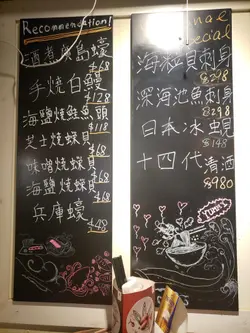 Recommendation!
酒煮廣島蠔
$68
手燒白鱔
$128
海鹽燒鮭魚頭
$118
芝士燒蠔貝
$68
味噌燒蠔貝
$68
海鹽燒蠔貝
$68
兵庫蠔
$48
Special
海粒貝刺身
$298
深海池魚刺身
$298
日本冰蜆
$148
十四代清酒
$980
YUMMY